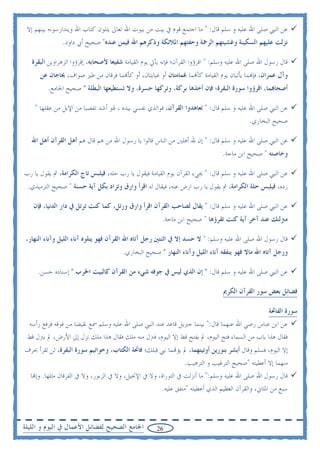 عن النبي صلى الله عليه و سلم قال: " ما اجتمع قوم في بيت من بيوت الله تعالى يتلون كتاب الله ويتدارسونه بينهم إلا
نزلت عليهم السكينة وغشيتهم الرحمة وحفتهم الملائكة وذكرهم الله فيمن عنده" صحيح أبي داود.
قال رسول الله صلى الله عليه وسلم: " اقرؤا القرآن؛ فإنه يأتي يوم القيامة شفيعا لأصحابه، إقرؤوا الزهراوين البقرة
وآل عمران، فإنهما يأتيان يوم القيامة كأنهما غمامتان أو غيايتان، أو كأنهما فرقان من طير صواف، يحاجان عن
أصحابهما، اقرؤوا سورة البقرة؛ فإن أخذها بركة، وتركها حسرة، ولا تستطيعها البطلة " صحيح الجامع.
عن النبي صلى الله عليه و سلم قال: " تعاهدوا القرآن، فوالذي نفسي بيده ، لهو أشد تفصيا من الإبل من عقلها "
صحيح البخاري.
عن النبي صلى الله عليه و سلم قال: " إن لله أهلين من الناس قالوا يا رسول الله من هم قال هم أهل القرآن أهل الله
وخاصته " صحيح ابن ماجة.
عن النبي صلى الله عليه و سلم قال: " يجيء القرآن يوم القيامة فيقول يا رب حله، فيلبس تاج الكرامة، ثم يقول يا رب
زده، فيلبس حلة الكرامة، ثم يقول يا رب ارض عنه، فيقال له اقرأ وارق وتزاد بكل آية حسنة " صحيح الترميذي.
عن النبي صلى الله عليه و سلم قال: " يقال لصاحب القرآن اقرأ وارق ورتل، كما كنت ترتل في دار الدنيا، فإن
منزلتك عند آخر آية كنت تقرؤها " صحيح ابن ماجة.
قال رسول الله صلى الله عليه وسلم: " لا حسد إلا في اثنتين رجل أتاه الله القرآن فهو يتلوه آناء الليل وآناء النهار،
ورجل أتاه الله مالا فهو ينفقه آناء الليل وآناء النهار " صحيح البخاري.
عن النبي صلى الله عليه و سلم قال: " إن الذي ليس في جوفه شيء من القرآن كالبيت الخرب " إسناده حسن.
فضائل بعض سور القرآن الكريم
سورة الفاتحة
عن ابن عباس رضي الله عنهما قال: "بينما جبريل قاعد عند النبي صلى الله عليه وسلم سمع نقيضا من فوقه فرفع رأسه
فقال هذا باب من السماء فتح اليوم، لم يفتح قط إلا اليوم، فنزل منه ملك فقال هذا ملك نزل إلى الأرض، لم ينزل قط
إلا اليوم، فسلم وقال أبشر بنورين أوتيتهما، لم يؤتهما نبي قبلك؛ فاتحة الكتاب، وخواتيم سورة البقرة، لن تقرأ بحرف
منهما إلا أعطيته "صحيح الترغيب و الترهيب.
قال رسول الله صلى الله عليه وسلم: " ما أنزلت في التوراة، ولا في الإنجيل، ولا في الزبور، ولا في الفرقان مثلها. وإنها
سبع من المثاني، والقرآن العظيم الذي أعطيته "متفق عليه.
26 الجامع الصحيح لفضائل الأعمال في اليوم و الليلة